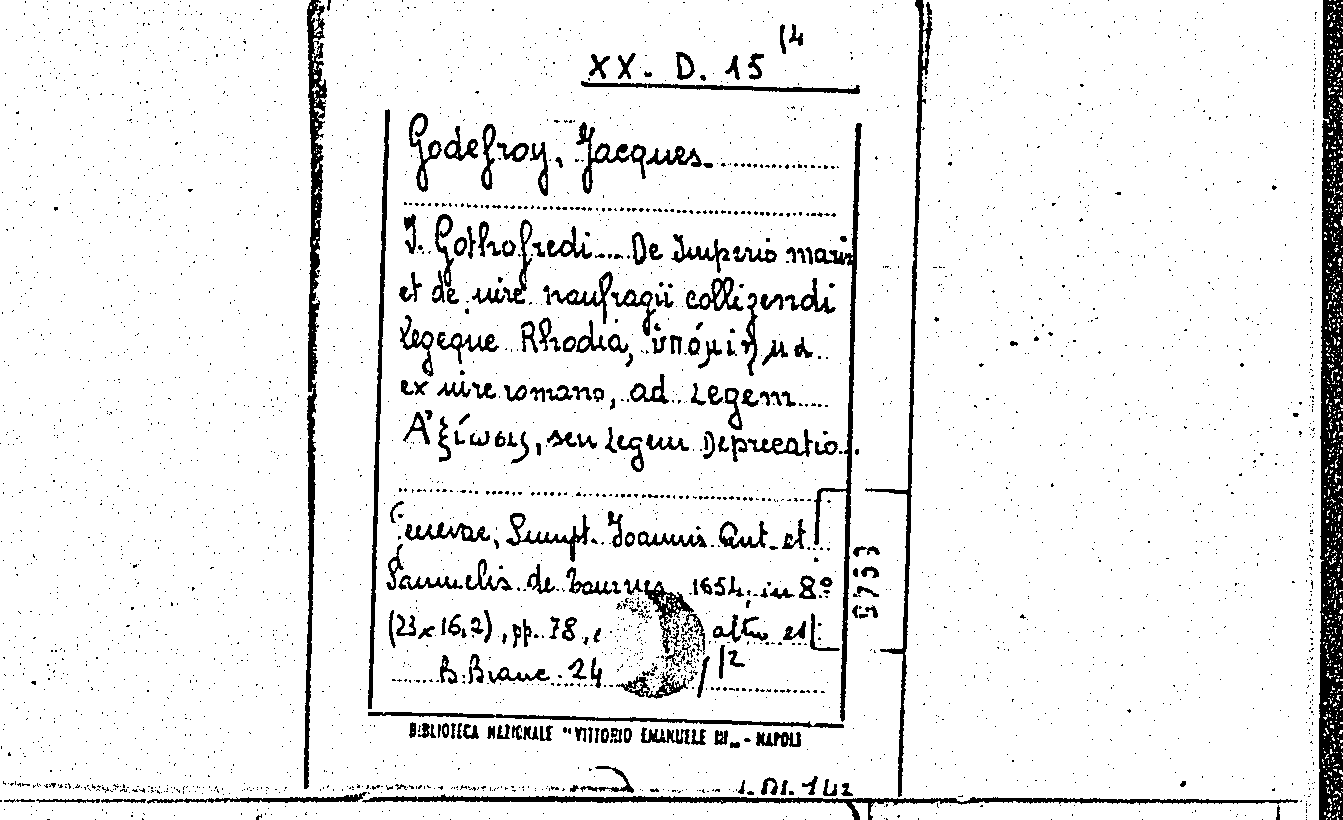 XX. D. 15 14
Godefroy, Jacques.
J. Gothofredi.... De Imperio maris
et de iure naufragii colligendi
Legeque Rhodia, ὑπόμνημα
ex iure romano, ad Legem
Ἀξίωσις, seu Legem Deprecatio..
Genevae, Sumpt. Joannis Ant. et
Samuelis de Tournes, 1654, in 8.º
(23x16,2), pp. 78, altro es.
B. Branc. 24 /12
BIBLIOTECA NAZIONALE "VITTORIO EMANUELE III„ - NAPOLI